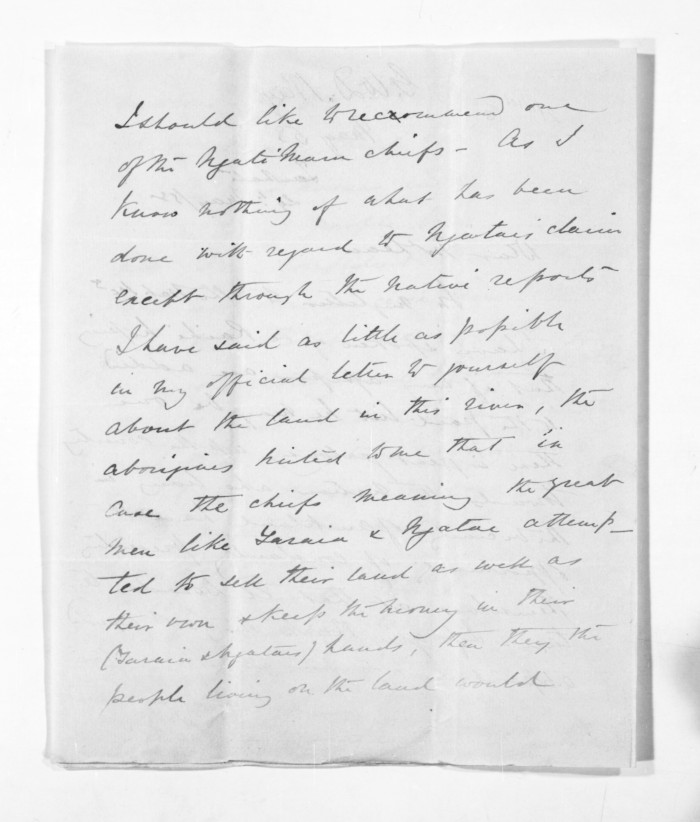 I should like to recommend one
of the Ngati Maru chiefs - As I
know nothing of what has been
done with regard to Ngatais claim
except through the Native reports
I have said as little as possible
in my official letter to yourself
about the land in this river, the
aborigines hinted to me that in
case the chiefs meaning the great
men like Taraia & Ngatae attemp-
ted to sell their land as well as
their own & keep the money in their
(Taraia & Ngatais) hands, then they the
people living on the land would